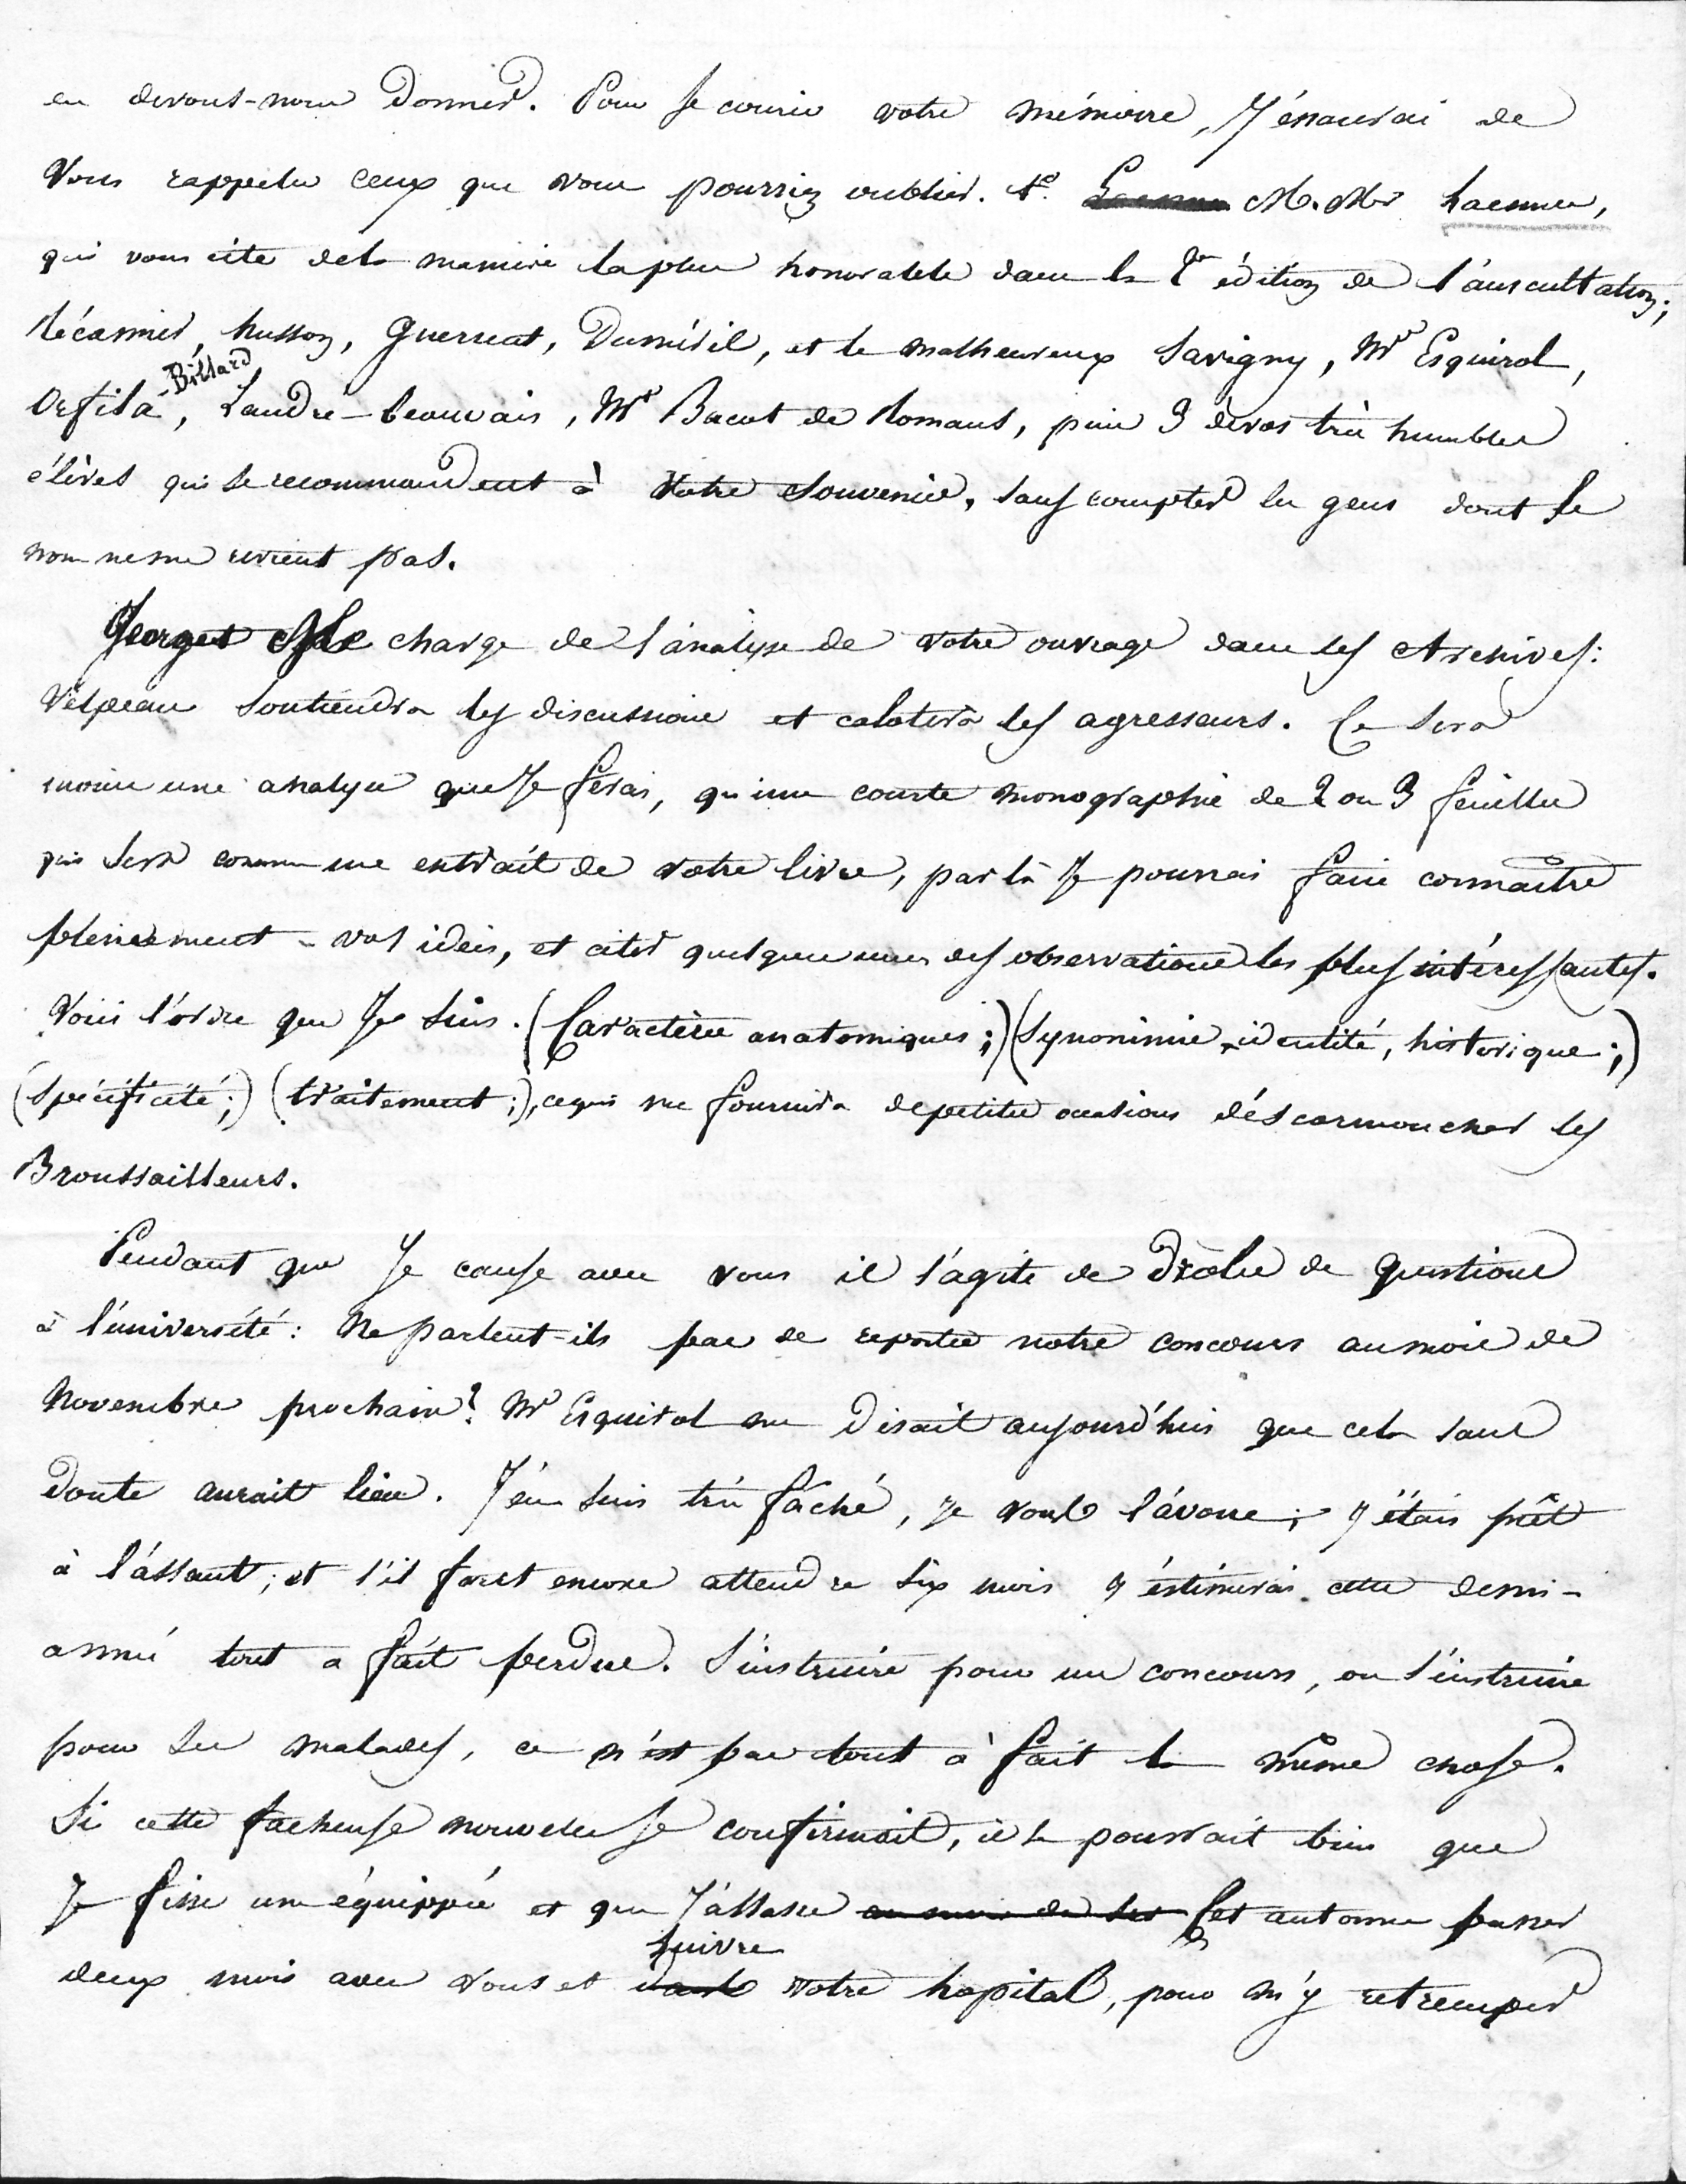 en devons-nous donner. Pour secourir votre mémoire, J'essaierai de
Vous rappeler ceux que vous pourriez oublier. 1º. Laennec M.Mrs Laennec,
qui vous cite dela maniere laplus honorable dans la 2e édition de l'auscultation;
Récamier, husson, Guersent, Duméril, et le malheureux Savigny, Mr Esquirol,
Orfila, Billard, Landré-beauvais, Mr Bacot de Romans, puis 3 devos très humbles
élèves qui se recommandent à Votre Souvenir, sans compter les gens dont le
nom neme revient pas.
Georget se charge de l'analyse de votre ouvrage dans les Archives:
Velpeau Soutiendra les discussions et calotera les agresseurs. Ce sera
moins une analyse que Je ferai, qu'une courte monographie de 2 ou 3 feuilles
qui sera comme une extrait de votre livre, par là Je pourrai faire connaître
pleinement vos idées, et citer quelques unes des observations les plus intéressantes.
Voici l'ordre que Je Suis. (Caractères anatomiques;) (Synonimie, identité, historique;)
(Spécificité;) (traitement;), cequi me fournira depetites occasions d'éscarmoucher les
Broussailleurs.
Pendant que Je cause avec vous il s'agite de drôles de questions
à l'université: Ne parlent-ils pas de reporter notre concours aumois de
Novembre prochain? Mr Esquirol me disait aujourd'hui que cela sans
doute aurait lieu. J'en suis très fâché, Je vous l'avoue; J'étais prêt
à l'assaut; et s'il faut encore attendre Six mois J'éstimerai cette demi-
année tout a fait perdue. S'instruire pour un concours, ou s'instruire
pour les malades, ce n'est pas tout à fait la même chose.
Si cette facheuse nouvelle se confirmait, il se pourrait bien que
Je fisse une équippée et que J'allasse au mois de Cet automne passer
deux mois avec vous et dans suivre votre hopital, pour m'y retremper